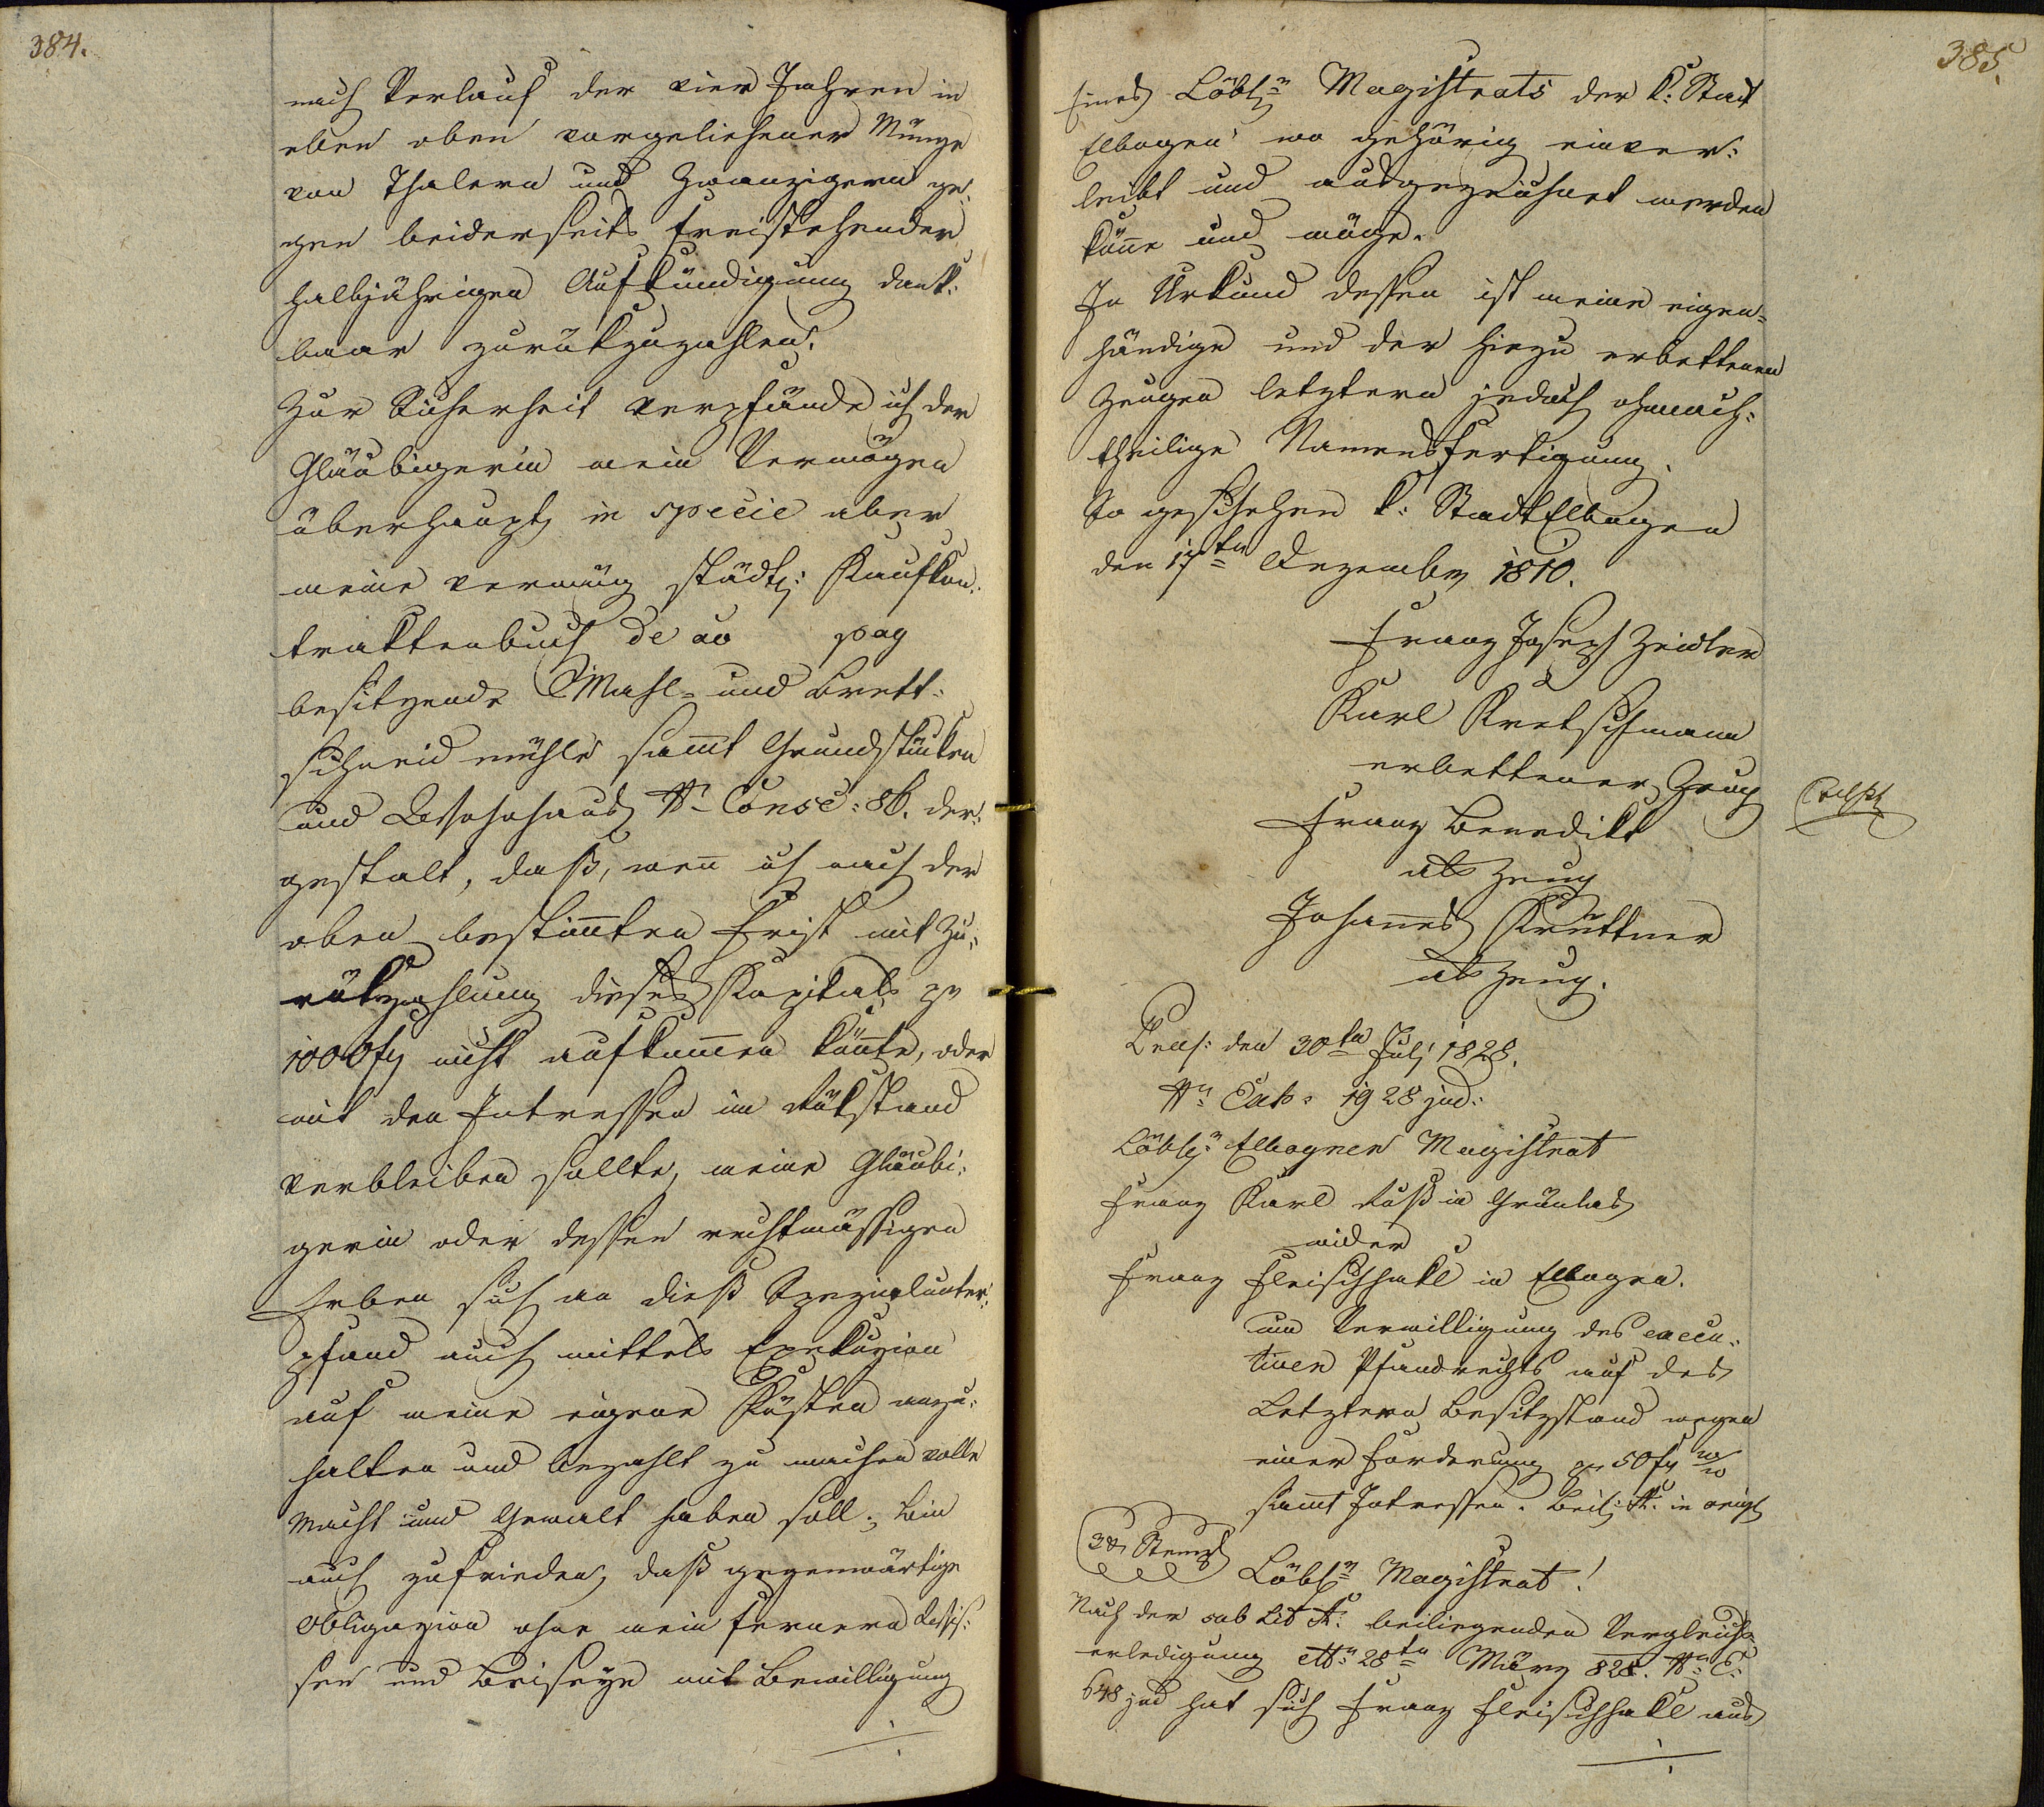 384.
nach Verlauf der vier Jahren in
eben oben vorgeliehener Münze
von Thalern und Zwanzigern ge¬
gen beiderseits freistehender
halbjährigen Aufkündigung dank:
baar zurükzuzahlen.
Zur Sicherheit verpfände ich der
Gläubigerin mein Vermögen
überhaupt, in specie aber
meine vermög städt: Kaufkon:
traktenbuch de ao pag
besitzende Mahl- und Brett:
schneid mühle sam̅t Grundstüken
und Wohnhaus Nro Consc: 86. der:
gestalt, daß, wen̅ ich nach der
oben bestim̅ten Frist mit Zu:
rükzahlung dieses Kapitals pr
1000 fl nicht aufkom̅en kön̅te, oder
mit den Intressen im Rükstand
verbleiben sollte, meine Gläubi:
gerin oder dessen rechtmässigen
Erben sich an dieß Spezialunter:
pfand auch mittels Exekuzion
auf meine eigene Kösten anzu:
halten und bezahlt zu machen volle
Macht und Gewalt haben soll; bin
auch zufrieden, daß gegenwärtige
Obligazion ohne mein fernern Wis:
sen und Beiseyn mit Bewilligung
385.
Eines Löbln Magistrats der K: Stadt
Elbogen wo gehörig einver:
leibt und ausgezeichnet werden
kön̅e und möge.
In Urkund dessen ist meine eigen=
händige und der hiezu erbettenen
Zeugen letztern jedoch ohnnach:
theilige Namensfertigung.
So geschehen K: Stadt Elbogen
den 17ten Dezember 1810.
Franz Joseph Zeidler
Karl Kretschmann
erbettener Zeug
Franz Benedikt
als Zeug
Johan̅es Krüttner
als Zeug.
Praes: den 30ten Julj 1828.
Nro Exh: 1928 jud:
Löbler Elbogner Magistrat
Franz Karl Ruß in Grünlas
wider
Franz Fleischhakl in Elbogen.
um Verwilligung des execu:
tiven Pfandrechts auf des
Letztern Besitzstand wegen
einer Forderung pr 50 fl
sam̅t Intressen. Beil: A: in origl
Stempl
Löblr Magistrat!
Nach der sub Lit A: beiliegenden Vergleichs
erledigung 28ten März 828. Nro E:
648 jud hat sich Franz Fleischhakl aus